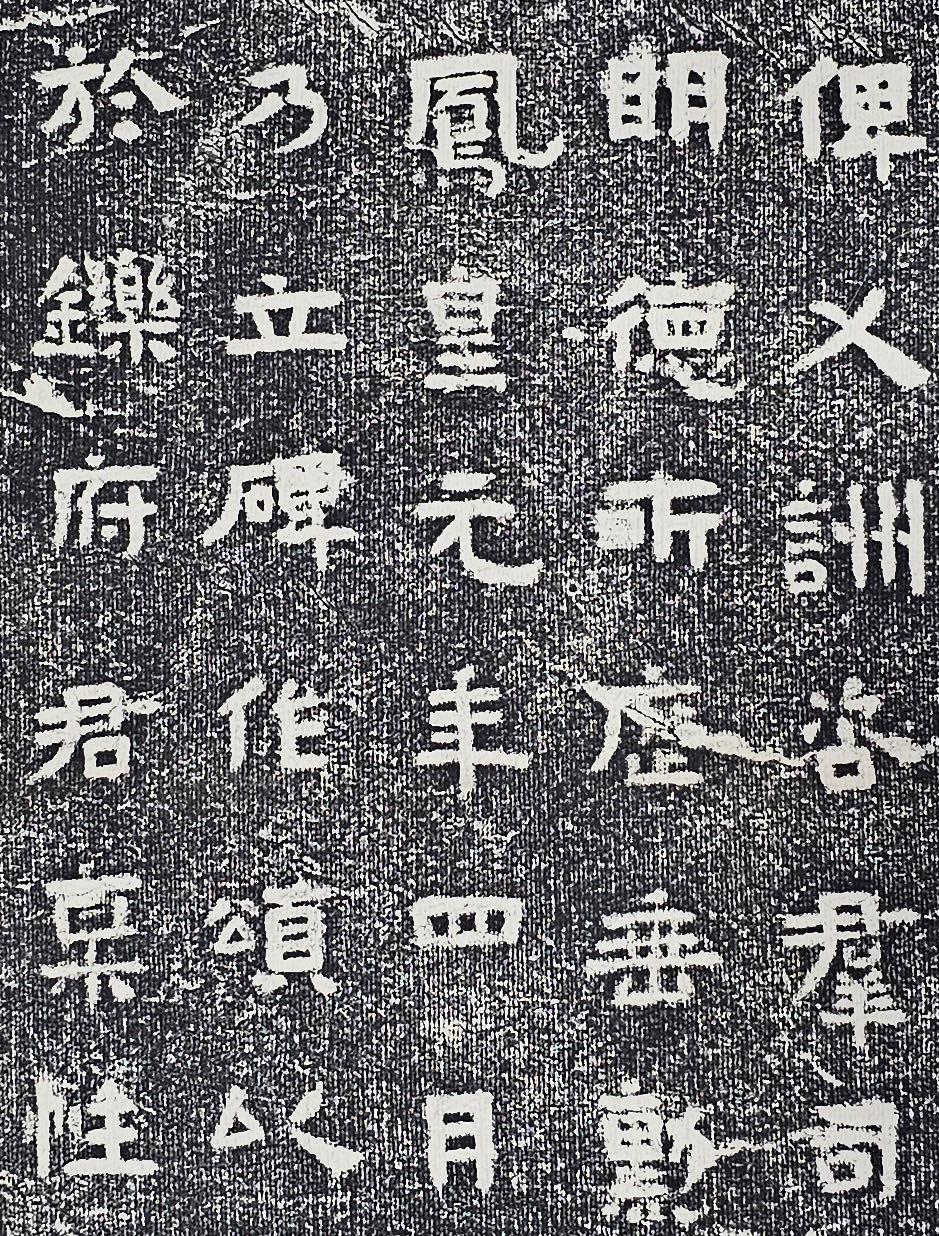 俾乂訓咨羣司
眀德所垂勳
鳳皇元年四月
乃立碑作頌以
於鑠府君稟性